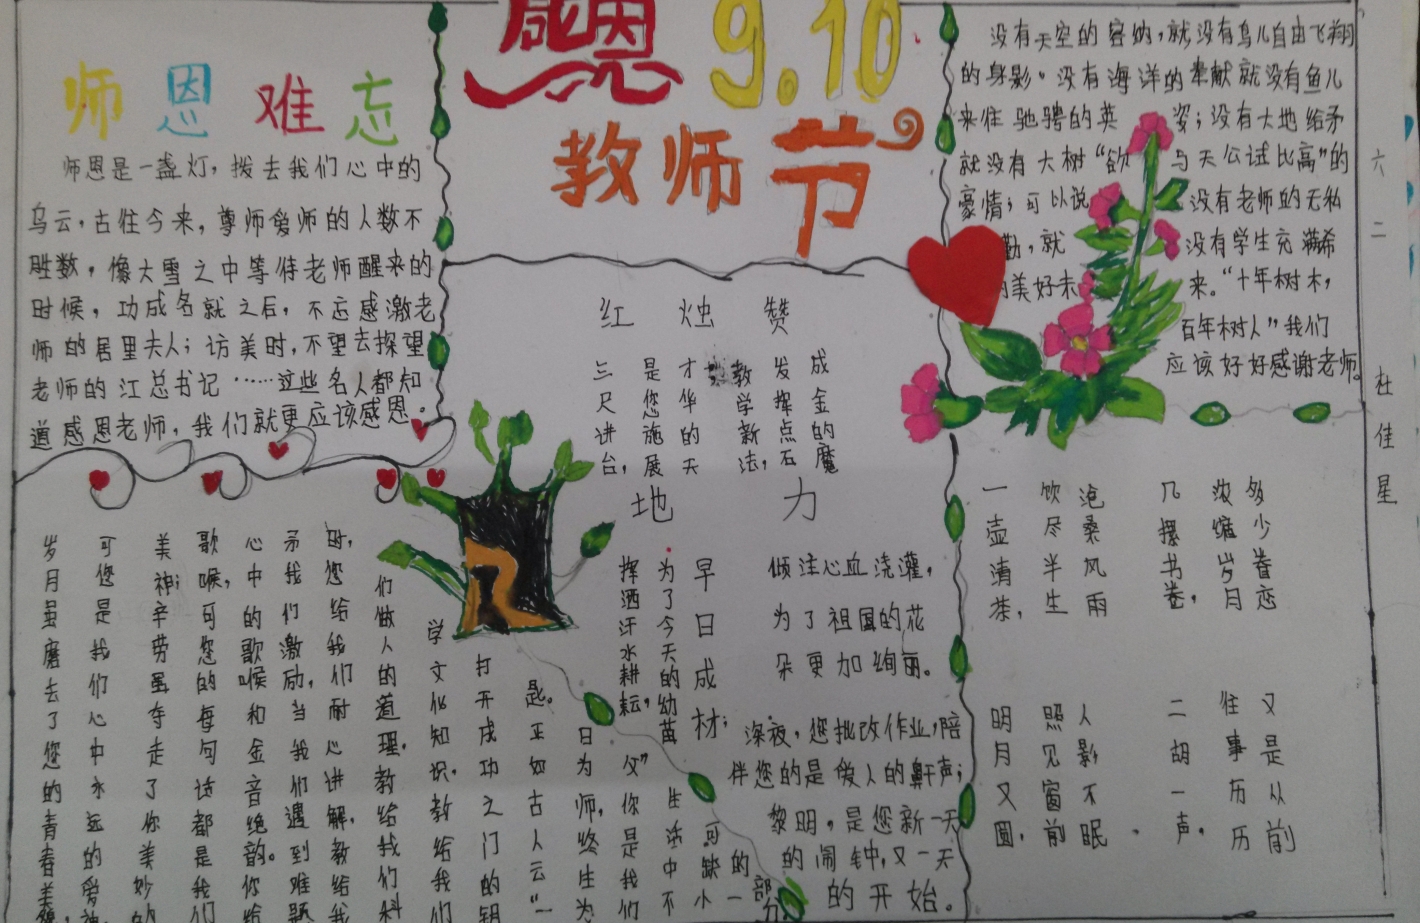 感恩
9.10
教师节
师恩难忘
师恩是一盏灯，拨去我们心中的
乌云，古往今来，尊师爱师的人数不
胜数，像大雪之中等待老师醒来的
时候，功成名就之后，不忘感激老
师的居里夫人；访美时，不望去探望
老师的江总书记……这些名人都知
道感恩老师，我们就更应该感恩。
红烛赞
三尺讲台，
是您施展
才华的天
地
教学新法，
发挥点石
成金的魔
力
挥洒汗水耕耘，
为了今天的幼苗
早日成材；
倾注心血浇灌，
为了祖国的花
朵更加绚丽。
深夜，您批改作业，陪
伴您的是俊人的鼾声；
黎明，是您新一天
的闹钟，又一天
的开始。
没有天空的容纳，就没有鸟儿自由飞翔
的身影。没有海洋的奉献就没有鱼儿
来往驰骋的英姿；没有大地给矛
就没有大树“欲与天公试比高”的
豪情；可以说没有老师的无私
勤，就没有学生充满希
的美好未来。“十年树木，
百年树人”我们
应该好好感谢老师。
一壶清茶，
饮尽半生
沧桑风雨
几摞书卷，
浓缩岁月
多少眷恋
明月又圆，
照见窗前
人影不眠。
二胡一声，
往事历历
又是从前
六二
杜佳星
学文化知识。教给我们
打开成功之门的钥
匙。正如古人云“一
日为师，终生为
父”你是我们
生活中不
可缺小
的一
部分
们做人的道理，教给我们科
时，您给我们耐心讲解，教给我
矛我们激励，当我们遇到难题
心中的歌喉和金音绝韵。你给
歌喉，可您的每句话都是我们
美神；辛劳虽夺走了你美妙的
可您是我们心中永远的爱神
岁月虽磨去了您的青春美